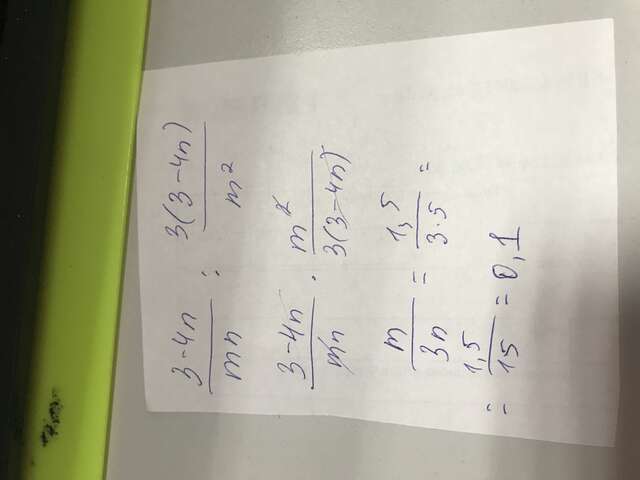 3-4n/mn : 3(3-4n)/m²
3-4n/mn · m²/3(3-4n)
m/3n = 1,5/3·5 =
= 1,5/15 = 0,1